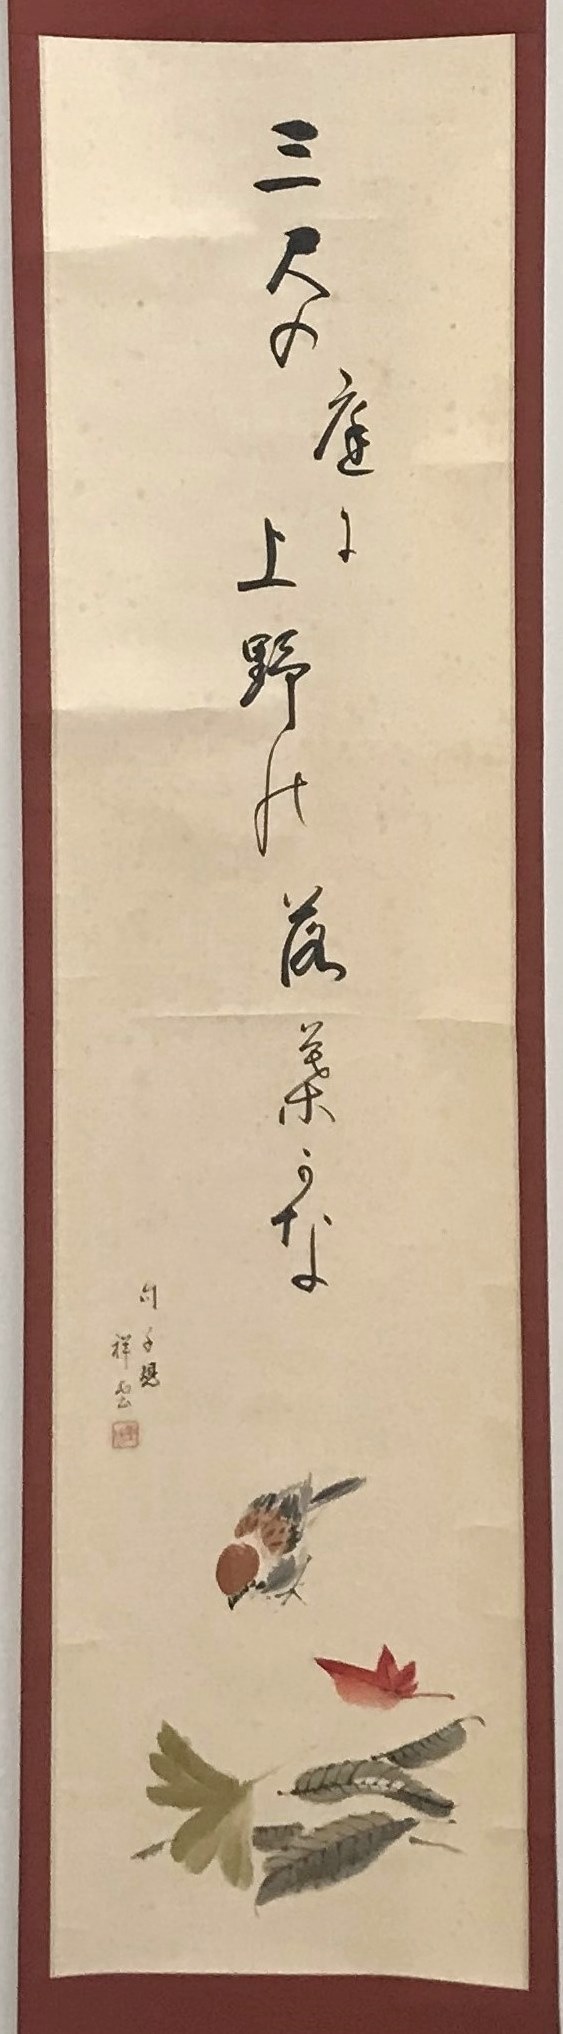 三尺の
庭に
上野の
落葉かな
句 子規
祥雲